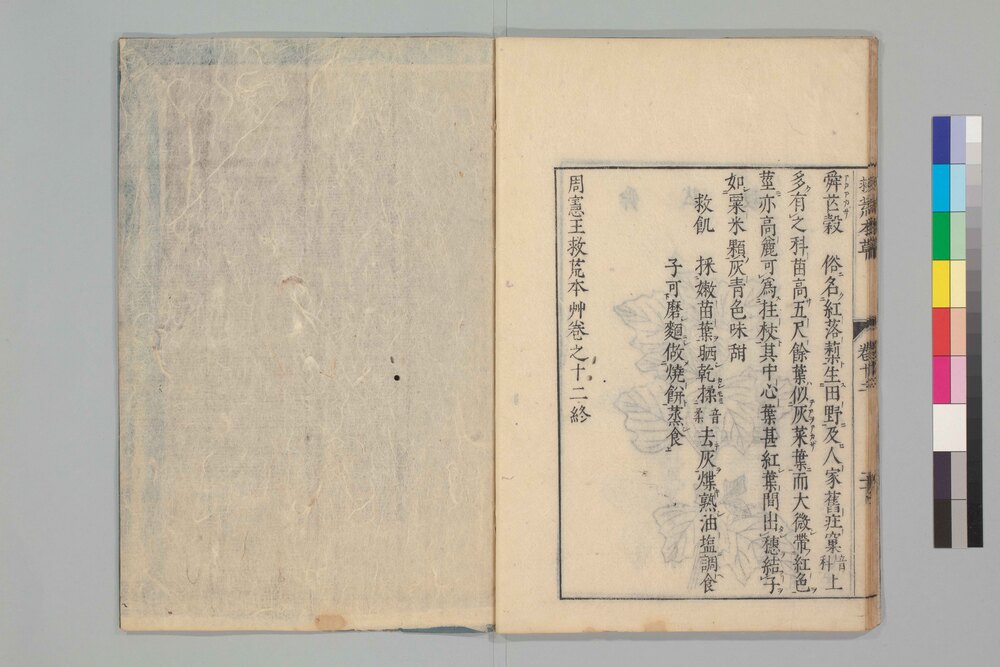 救荒本草
卷十二
舜芒穀 俗名紅落藜生田野及人家舊庄窠音科上
多有之科苗高五尺餘葉似灰菜葉而大微帶紅色
莖亦高麄可爲拄杖其中心葉甚紅葉間出穗結子
如粟米顆灰青色味甜
救飢 採嫩苗葉晒乾揉音柔去灰煠熟油塩調食
子可磨麵做燒餅蒸食
周憲王救荒本艸卷之十二終